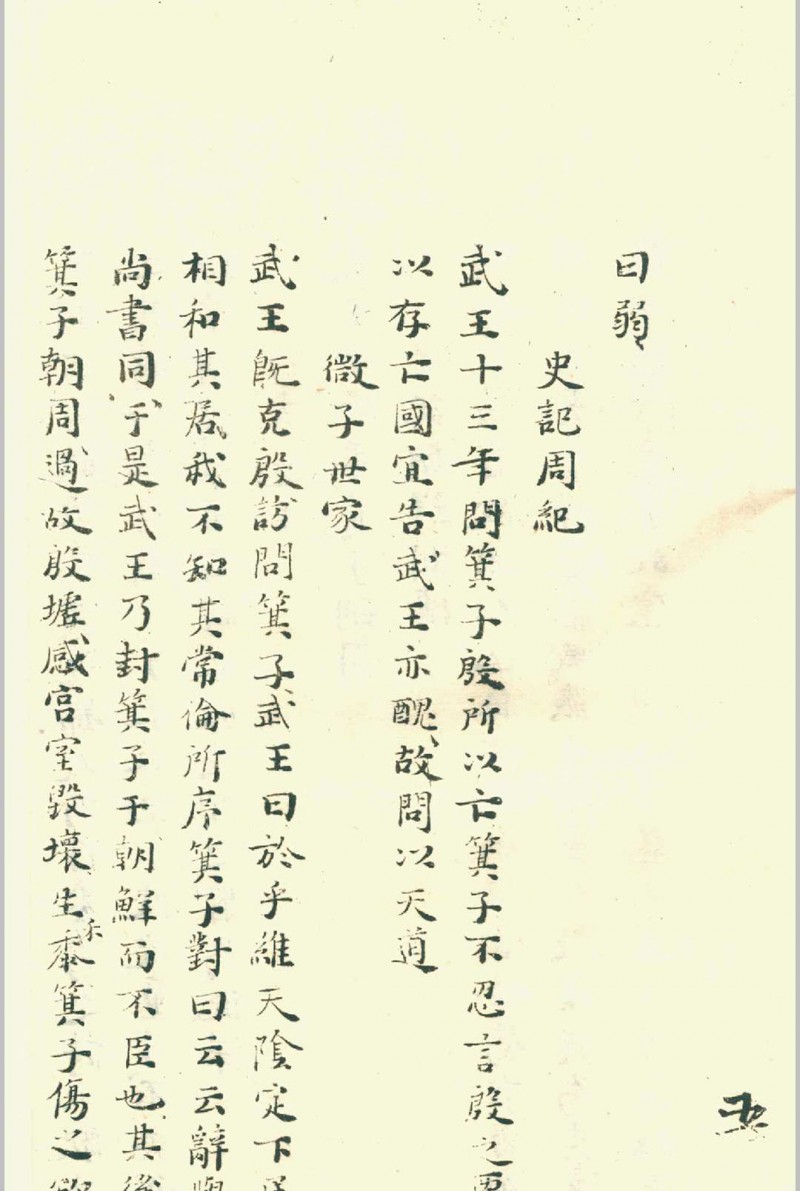 曰弱
史記周紀
武王十三年問箕子殷所以亡箕子不忍言殷之惡
以存亡國宜告武王亦醜故問以天道
微子世家
武王旣克殷訪問箕子武王曰於乎維天陰定下
相和其居我不知其常倫所序箕子對曰云云辭與
尚書同于是武王乃封箕子于朝鮮而不臣也其後
箕子朝周過故殷墟感宮室毀壞生禾黍箕子傷之欲